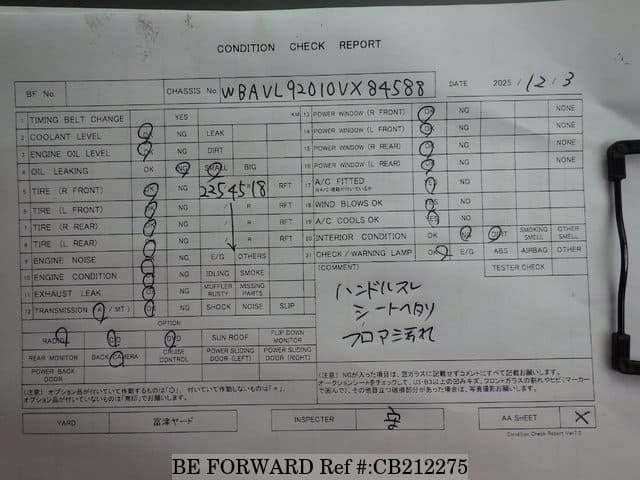 CONDITION CHECK REPORT
BF No. CHASSIS No. WBAVL92010VX84588 DATE 2025/12/3
1 TIMING BELT CHANGE YES KM
2 COOLANT LEVEL OK NG LEAK
3 ENGINE OIL LEVEL OK NG DIRT
4 OIL LEAKING OK NG SMALL BIG
5 TIRE (R FRONT) OK NG 235 45 18 RFT
6 TIRE (L FRONT) OK NG / R RFT
7 TIRE (R REAR) OK NG / R RFT
8 TIRE (L REAR) OK NG / R RFT
9 ENGINE NOISE OK NG E/G OTHERS
10 ENGINE CONDITION OK NG IDLING SMOKE
11 EXHAUST LEAK OK NG MUFFLER RUSTY MISSING PARTS
12 TRANSMISSION (A / MT) OK NG SHOCK NOISE SLIP
13 POWER WINDOW (R FRONT) OK NG NONE
14 POWER WINDOW (L FRONT) OK NG NONE
15 POWER WINDOW (R REAR) OK NG NONE
16 POWER WINDOW (L REAR) OK NG NONE
17 A/C FITTED YES NO
18 WIND BLOWS OK YES NO
19 A/C COOLS OK YES NO
20 INTERIOR CONDITION OK NG DIRT SMOKING SMELL OTHER SMELL
21 CHECK / WARNING LAMP OK E/G ABS AIRBAG OTHER
TESTER CHECK
(COMMENT)
ハンドルスレ
シートヘタリ
フロアマミ汚れ
OPTION
RADIO CD DVD SUN ROOF FLIP DOWN MONITOR
REAR MONITOR BACK CAMERA CRUISE CONTROL POWER SLIDING DOOR (LEFT) POWER SLIDING DOOR (RIGHT)
POWER BACK DOOR
(注意) オプション品が付いていて作動するものは「○」、付いていて作動しないものは「×」、
オプション品が付いていないものは「無印」でお願いします。
(注意) NGが入った項目は、芸ガラスに記載せずコメントにすべて記載お願いします。
オークションシートをチェックして、U3・B3以上の凹みキズ、フロントガラスの割れやヒビ(マーカー
で囲んで)、その他目立つ破損部分があった場合は、写真撮影お願いします。
YARD 富津ヤード INSPECTER AA SHEET X
Condition Check Report Ver7.0
BE FORWARD Ref #:CB212275